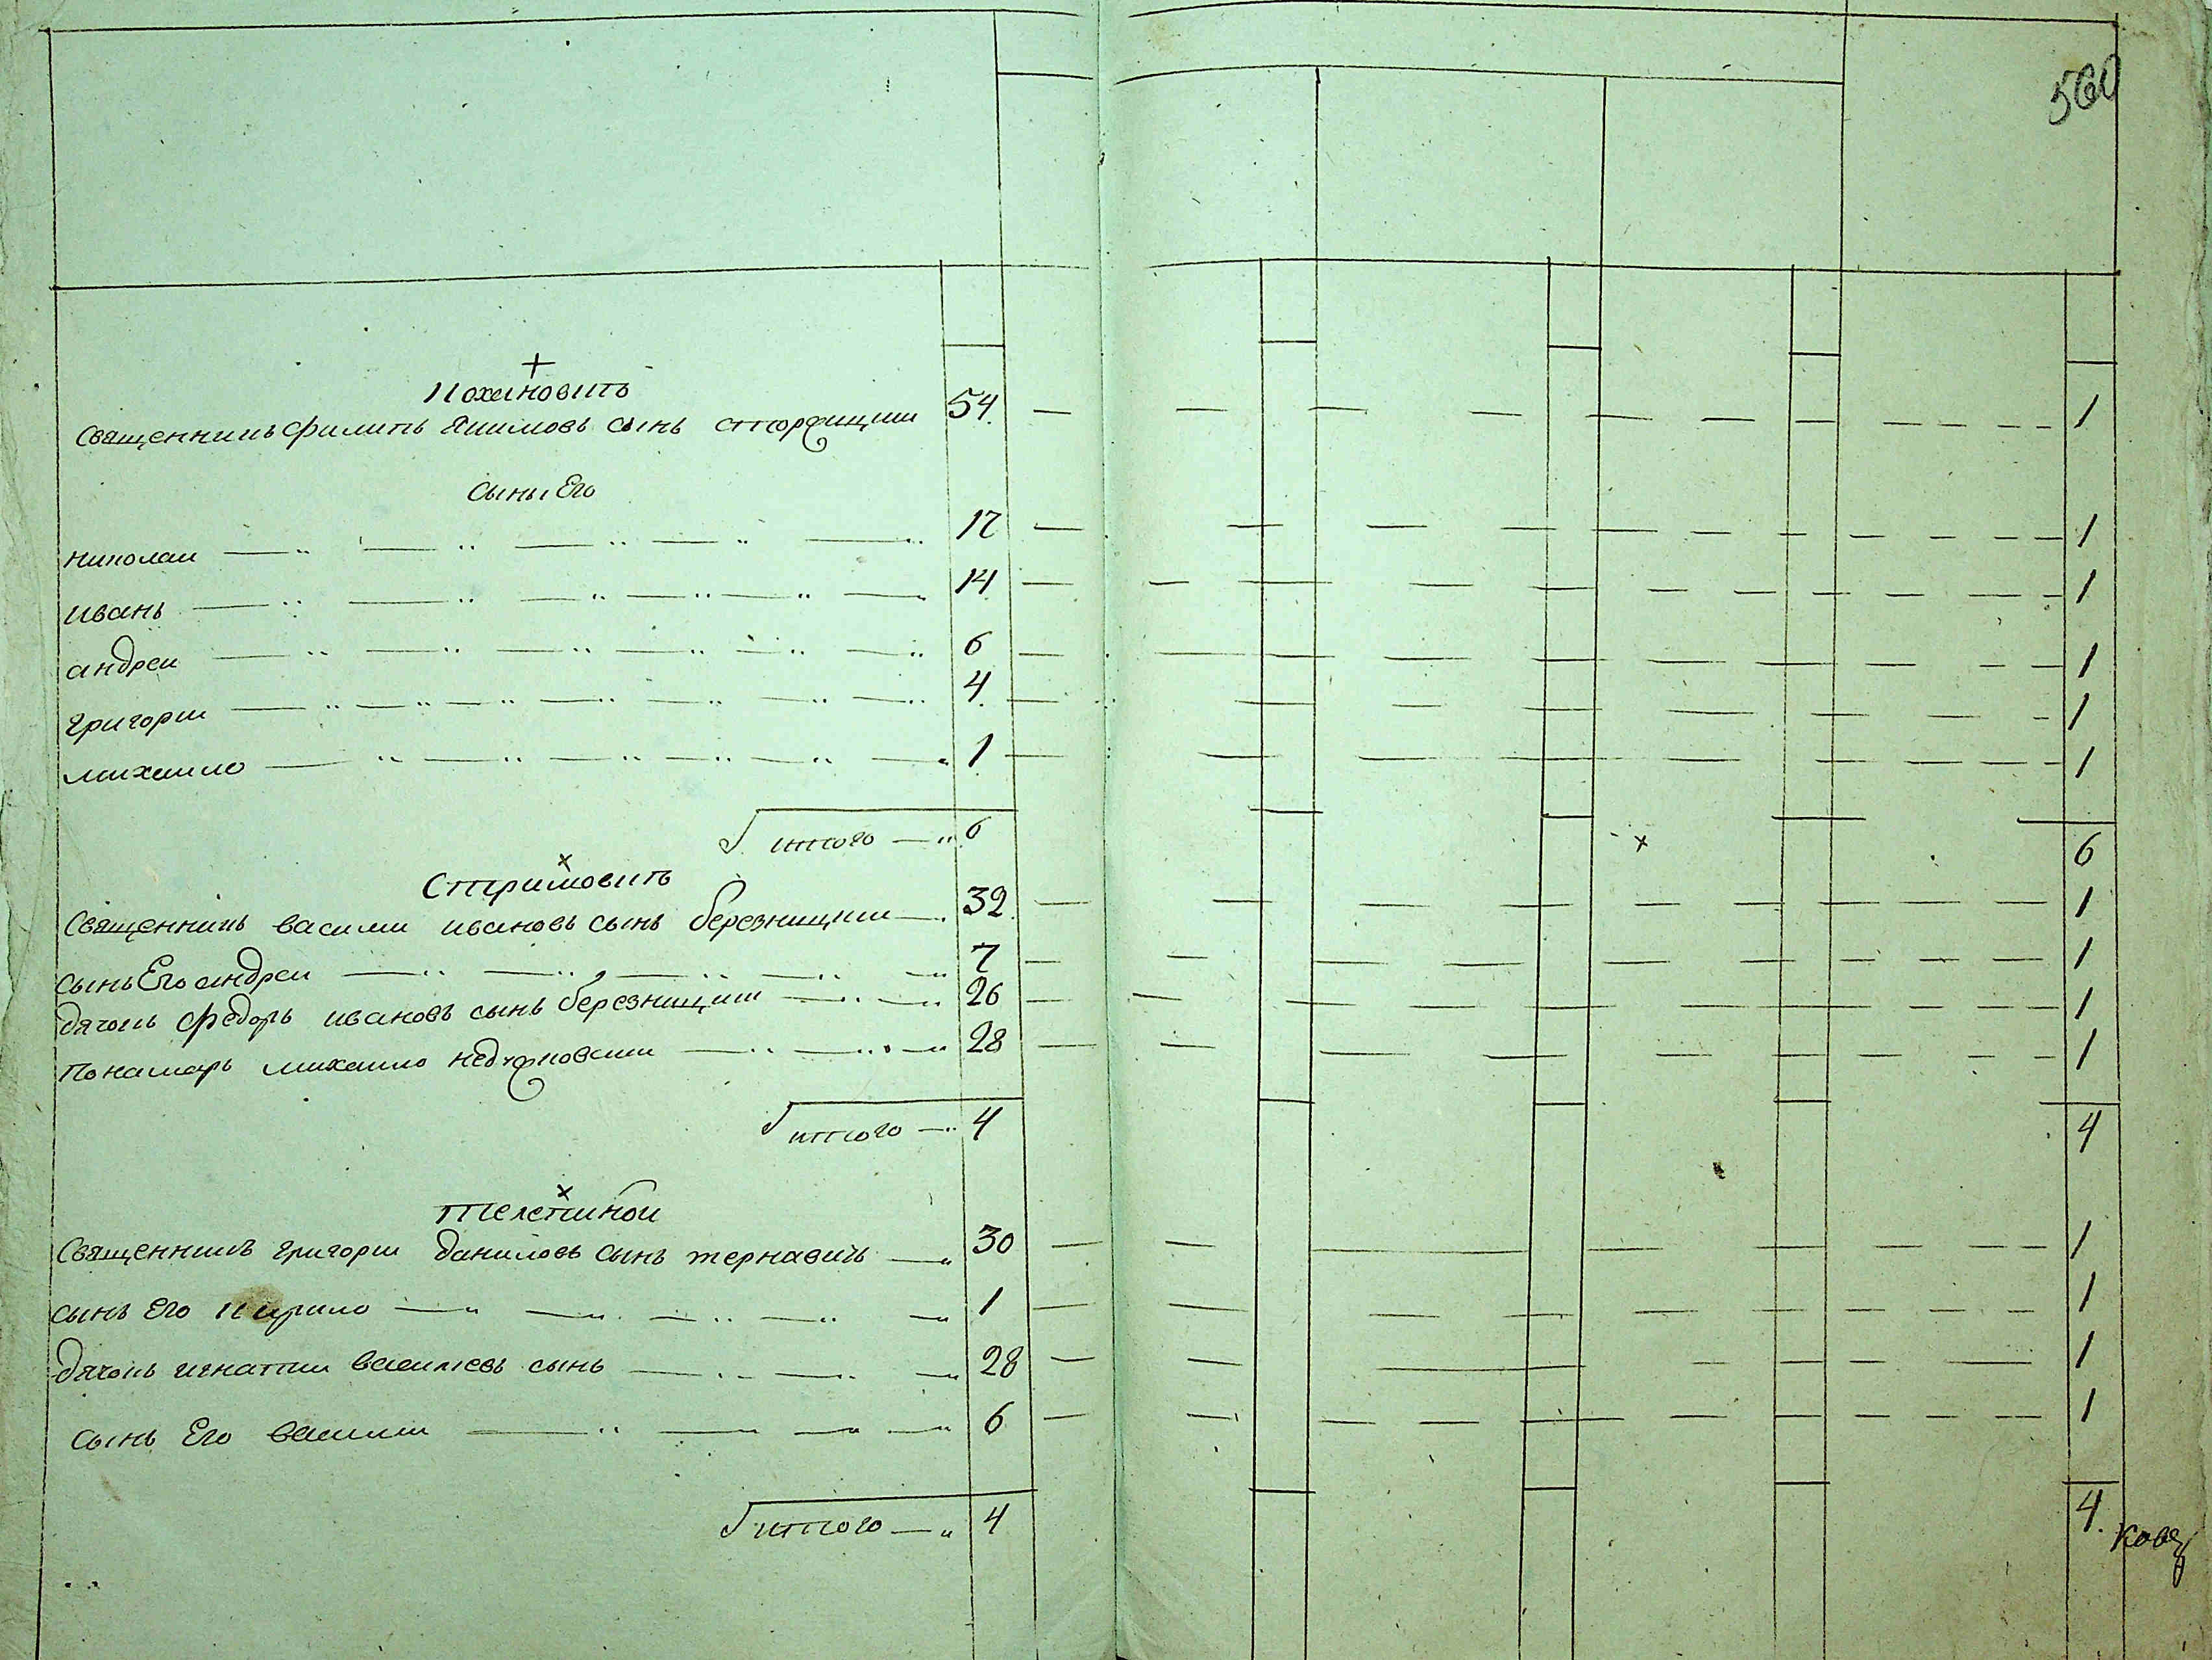 560
Похиновитъ
Священникъ филипъ Якимовъ сынъ 54 1
сыны Его
николаи 17 1
иванъ 14 1
андреи 6 1
григории 4 1
михаило 1 1
итого 6 6
Стримовитъ
Священникъ василии ивановъ сынъ березницкии 32 1
сынъ Его андреи 7 1
дячокъ федоръ ивановъ сынъ березницкии 26 1
Понамаръ михаило 28 1
итого 4 4
Священникъ григории даниловъ сынъ тернавичъ 30 1
сынъ Его Кирило 1 1
дячокъ игнатии василиевъ сынъ 28 1
сынъ Его василии 6 1
итого 4 4